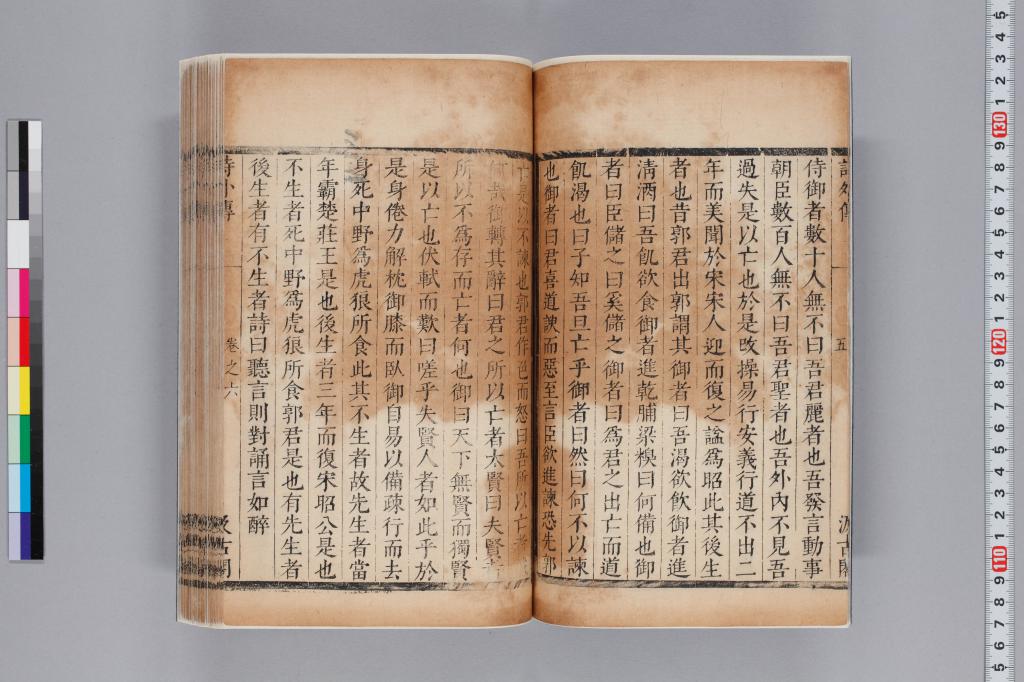 侍御者數十人無不曰吾君麗者也吾發言動事
朝臣數百人無不曰吾君聖者也吾外內不見吾
過失是以亡也於是改操易行安義行道不出二
年而美聞於宋宋人迎而復之諡為昭此其後生
者也昔郭君出郭謂其御者曰吾渴欲飲御者進
清酒曰吾飢欲食御者進乾脯梁糗曰何備也御
者曰臣儲之曰奚儲之御者曰為君之出亡而道
飢渴也曰子知吾且亡乎御者曰然曰何不以諫
也御者曰君喜道諛而惡至言臣欲進諫恐先郭
亡是以不諫也郭君作色而怒曰吾所以亡者
何哉御轉其辭曰君之所以亡者太賢曰夫賢者
所以不為存而亡者何也御曰天下無賢而獨賢
是以亡也伏軾而歎曰嗟乎失賢人者如此乎於
是身倦力解枕御膝而臥御自易以備疎行而去
身死中野為虎狼所食此其不生者故先生者當
年霸楚莊王是也後生者三年而復宋昭公是也
不生者死中野為虎狼所食郭君是也有先生者
後生者有不生者詩曰聽言則對誦言如醉
卷之六
五